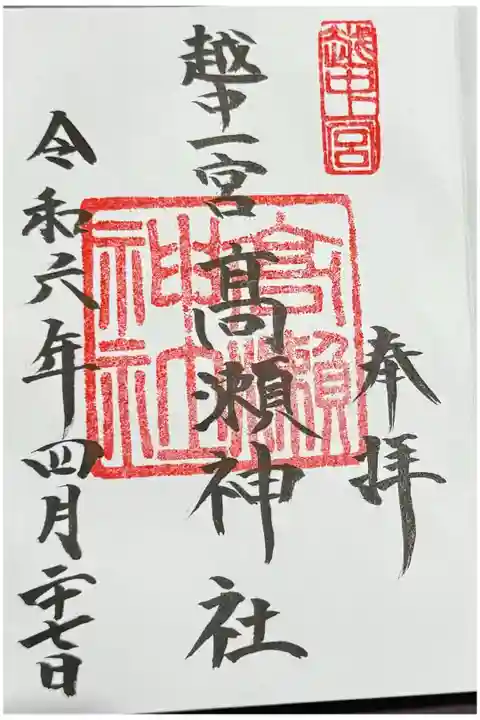 越中一宮
奉拝
越中一宮 髙瀬神社
高瀬神社
令和六年四月二十七日